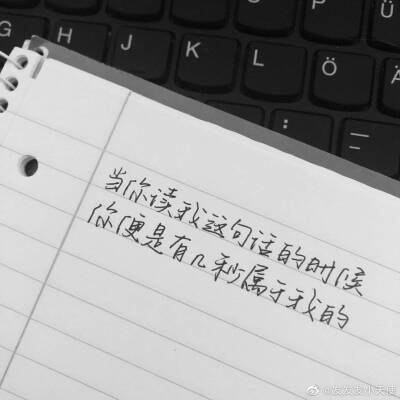 P Ü
G H J K L Ö Ä
: ;
当你读我这句话的时候
你便是有几秒属于我的
@友友友小天使